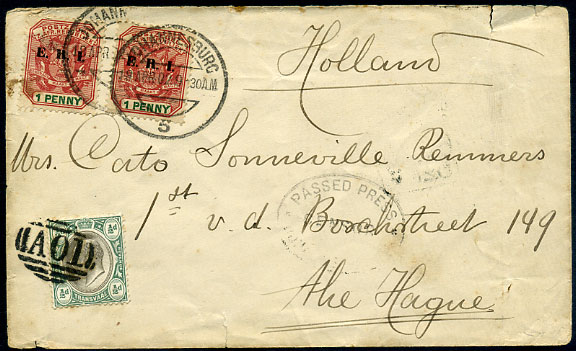 Holland
Mrs. Cato Sonneville Remmers
1st v. d. Boschstreet 149
The Hague
JOHANNESBURG
APR
30AM
5
E. R. I.
1 PENNY
E. R. I.
1 PENNY
PASSED PRESS
A01
½d ½d
TRANSVAAL